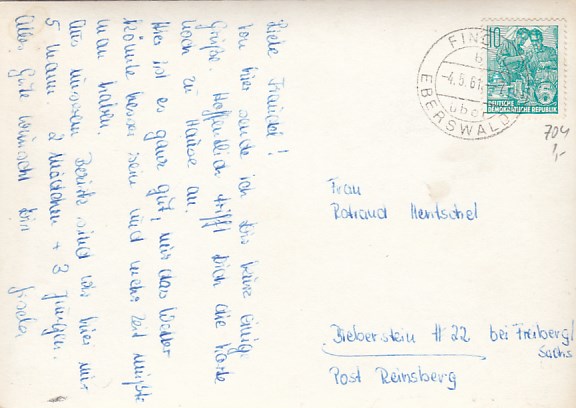 Liebe Traudel!
Von hier sende ich Dir liebe einige
Grüße. Hoffentlich trifft Dich die Karte
noch zu Hause an.
Hier ist es ganz gut, nur das Wetter
könnte besser sein und mehr Zeit müßte
man haben.
Aus unserem Bezirk sind wir hier nur
5 Mann. 2 Mädchen + 3 Jungen.
Alles Gute wünscht Dir
Gisela
FINOW
EBERSWALDE
über
-4.5.61.
10
DEUTSCHE
DEMOKRATISCHE REPUBLIK
704
1,-
Frau
Rotraud Hentschel
Bieberstein # 22 bei Freiberg/
Sachs.
Post Reinsberg